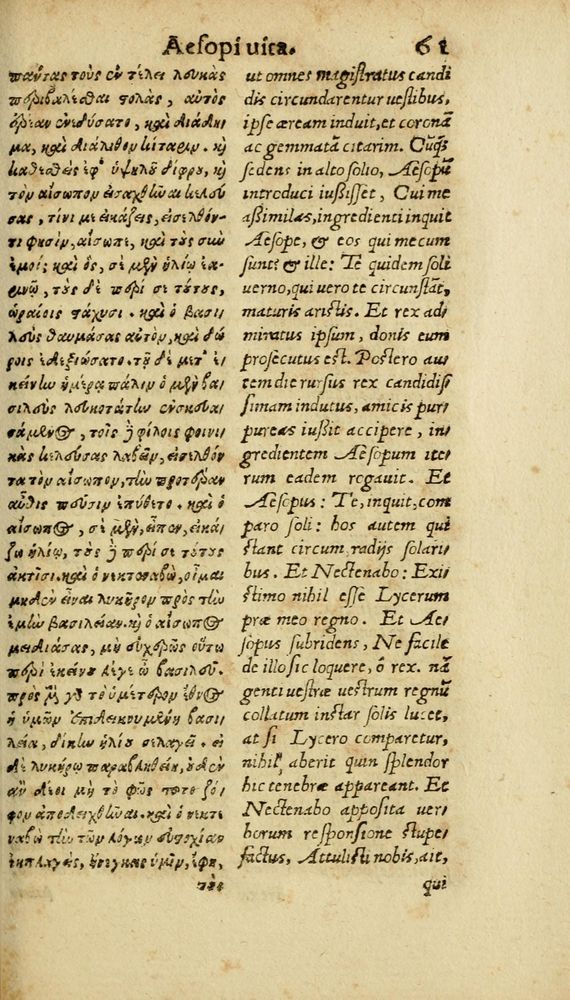 Aesopi uita. 61
πάντας τοὺς ἐν τέλει λευκὰς
περιβαλέσθαι στολὰς, αὐτὸς
καθεσθεὶς ἐφ' ὑψηλοῦ δίφρου, καὶ
τὸν αἴσωπον εἰσαχθῆναι κελεύ
σας, τίνι με εἰκάζεις, εἰσελθόν-
τι φησὶν, αἴσωπε, καὶ τοὺς σὺν
ἐμοί; καὶ ὃς, σὲ μὲν ἡλίῳ ἐα-
ρινῷ, τοὺς δὲ περὶ σὲ τούτους,
ὡραίοις στάχυσι. καὶ ὁ βασι-
λεὺς θαυμάσας αὐτὸν, καὶ δώ
ροις ἐδεξιώσατο. τῇ δὲ μετ' ἐ-
κείνην ἡμέρᾳ πάλιν ὁ μὲν βα-
σιλεὺς λευκοτάτην ἐνσκευα-
σάμενος, τοῖς δὲ φίλοις φοινι-
κᾶς κελεύσας λαβεῖν, εἰσελθόν
τα τὸν αἴσωπον, τὴν προτέραν
αὖθις πεῦσιν ἐπύθετο. καὶ ὁ
αἴσωπος, σὲ μὲν, εἶπεν, εἰκά-
ζω ἡλίῳ, τοὺς δὲ περὶ σὲ τούτους
ἀκτῖσι. καὶ ὁ νεκτεναβὼ, οἶμαι
μηδὲν εἶναι λυκῆρον πρὸς τὴν
ἐμὴν βασιλείαν. καὶ ὁ αἴσωπος
μειδιάσας, μὴ εὐχερῶς οὕτω
περὶ ἐκείνου λέγε ὦ βασιλεῦ.
πρὸς μὲν γὰρ τὸ ὑμέτερον ἔθνος
ἡ ὑμῶν ἐπιδεικνυμένη βασι-
λεία, δίκην ἡλίου σελαγεῖ. εἰ
δὲ λυκήρῳ παραβληθείη, οὐδὲν
ἂν δέοι μὴ τὸ φῶς τοῦτο ζό-
φον ἀποδειχθῆναι. καὶ ὁ νεκτε
ναβὼ τὴν τῶν λόγων εὐστοχίαν
ἐκπλαγεὶς, ἤνεγκας ἡμῖν, ἔφη,
ut omnes magistratus candi
dis circundarentur uestibus,
ipse aeream induit, et coronã
ac gemmatã citarim. Cumq́;
sedens in alto solio, Aesopũ
introduci iußisset, Cui me
aßimilas, ingredienti inquit
Aesope, & eos qui mecum
sunt? & ille: Te quidem soli
uerno, qui uero te circunstãt,
maturis aristis. Et rex ad-
miratus ipsum, donis eum
prosecutus est. Postero au-
tem die rursus rex candidis-
simam indutus, amicis pur-
pureas iußit accipere, in-
gredientem Aesopum ite-
rum eadem rogauit. Et
Aesopus: Te, inquit, com
paro soli: hos autem qui
stant circum radijs solari-
bus. Et Nectenabo: Exi-
stimo nihil esse Lycerum
præ meo regno. Et Ae-
sopus subridens, Ne facile
de illo sic loquere, ô rex. nã
genti uestræ uestrum regnũ
collatum instar solis lucet,
at si Lycero comparetur,
nihil aberit quin splendor
hic tenebræ appareant. Et
Nectenabo apposita uer-
borum responsione stupe-
factus, Attulisti nobis, ait,
qui